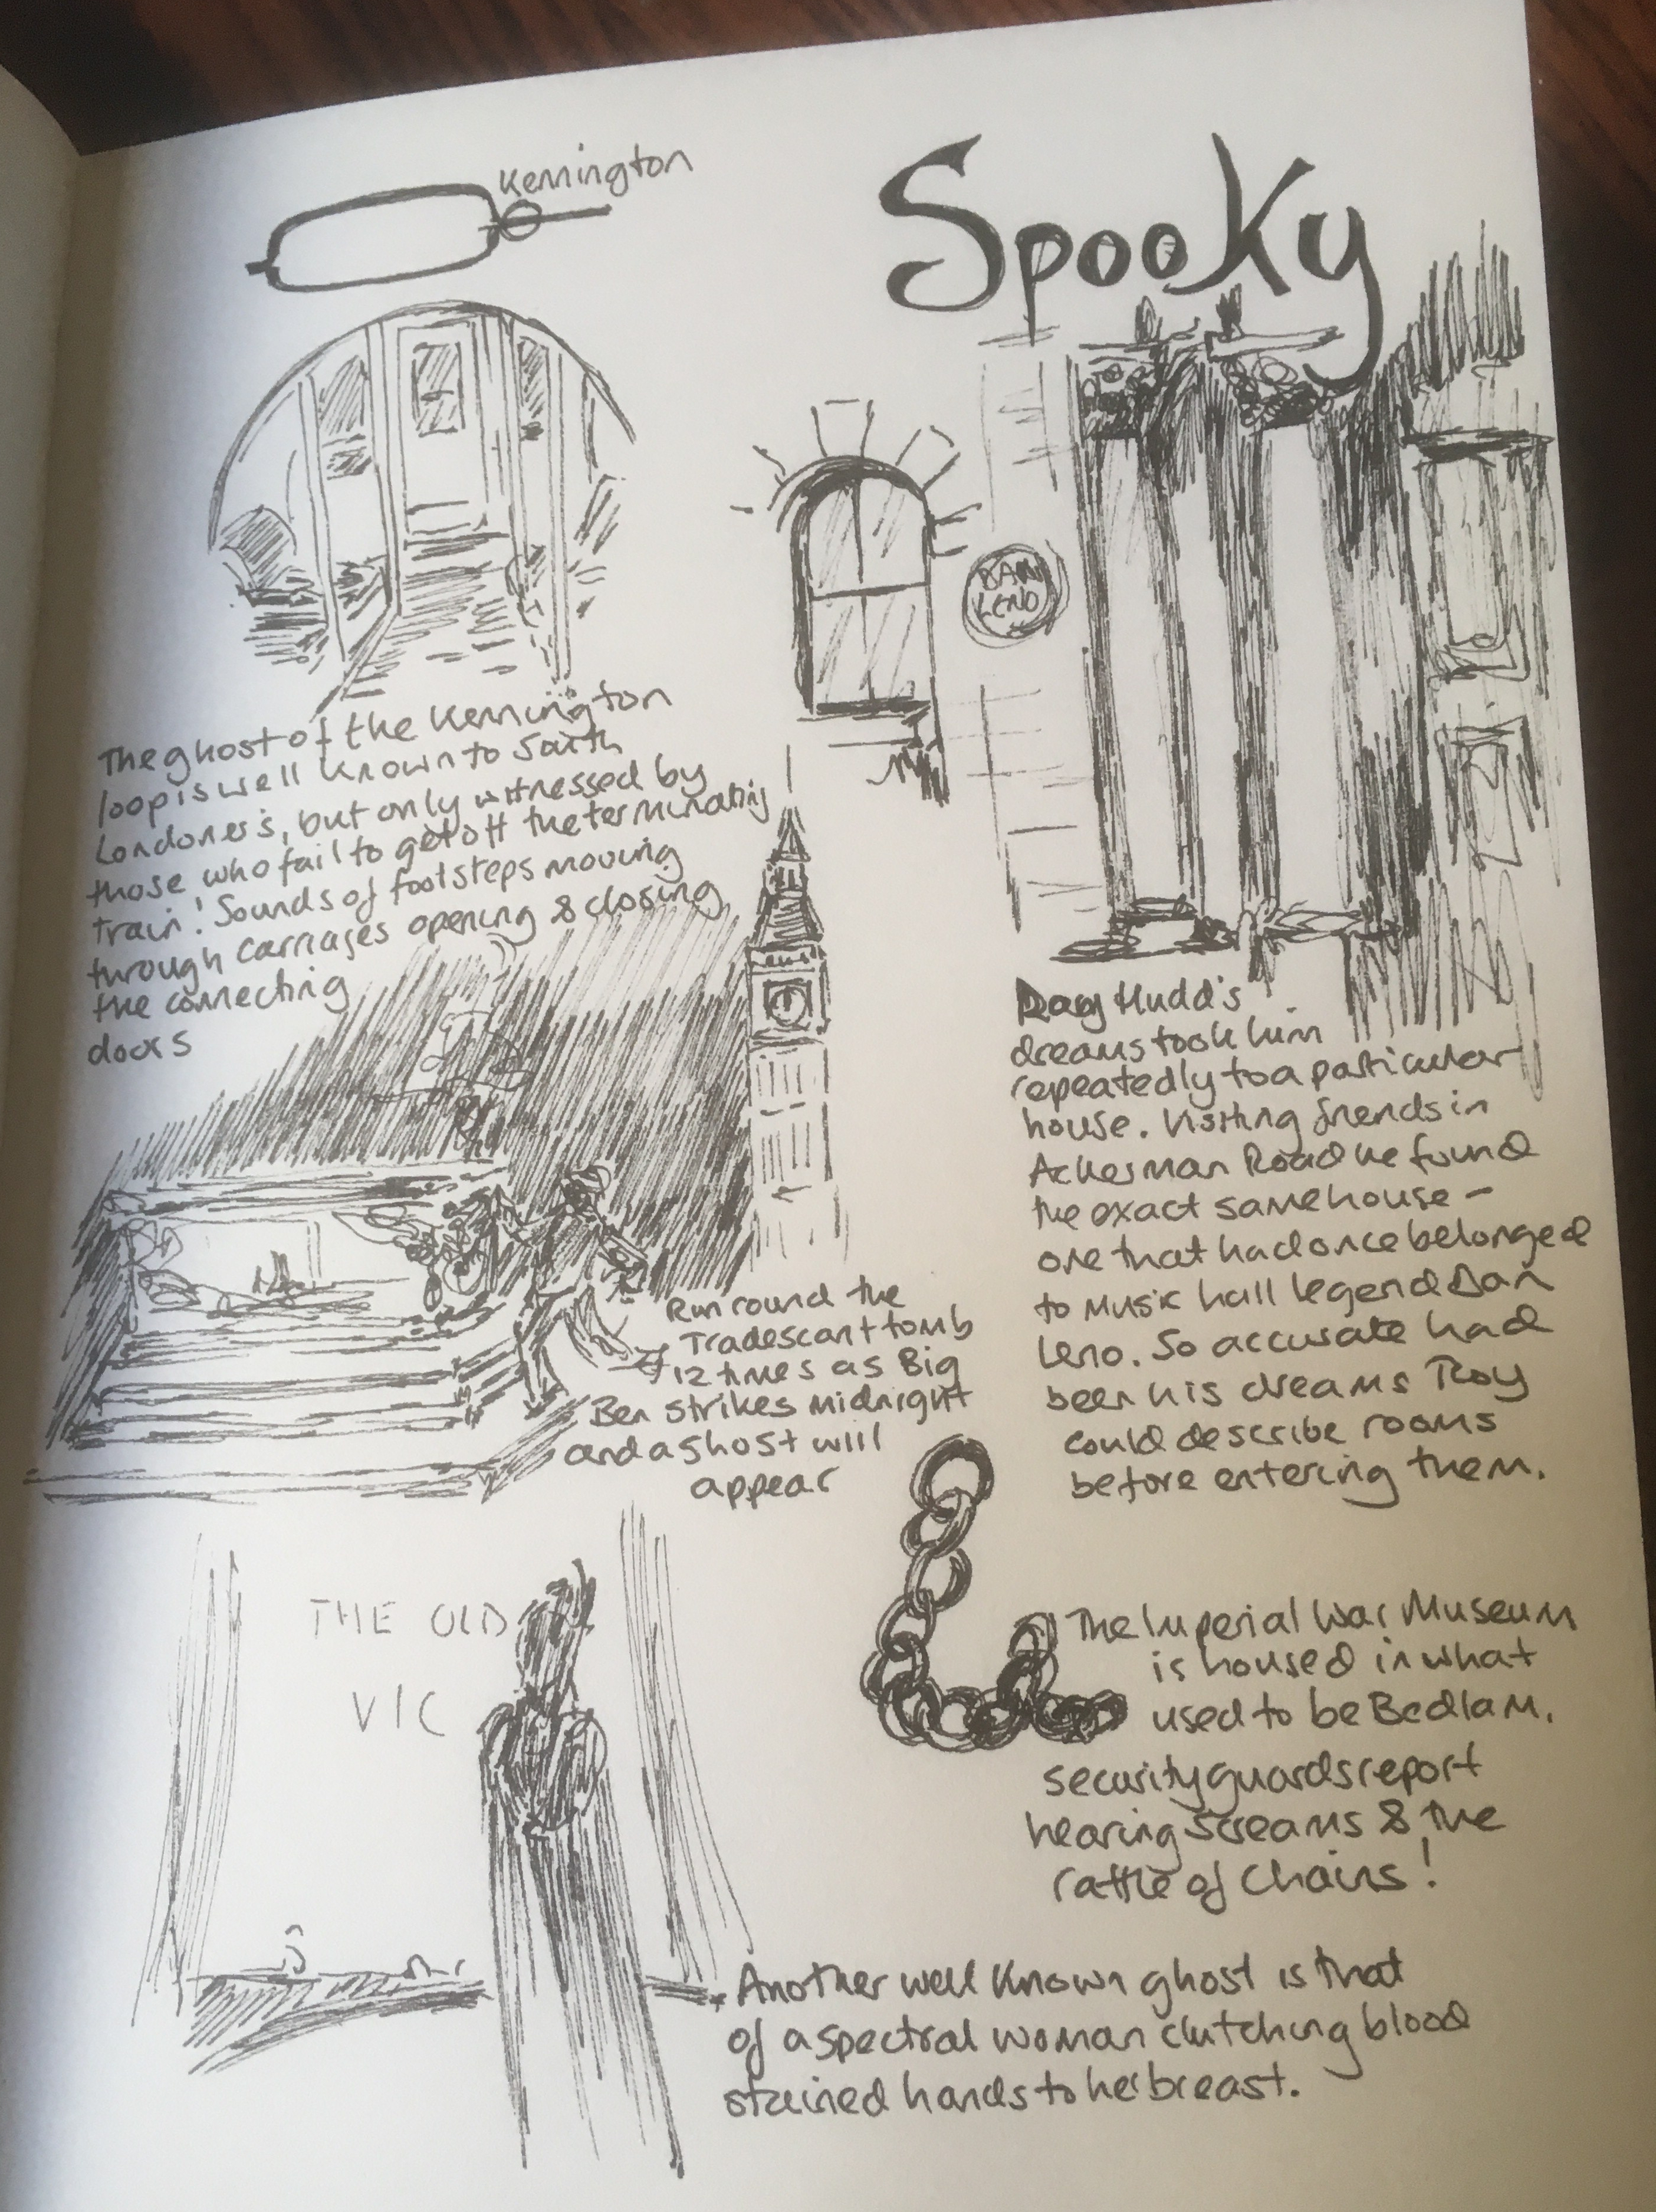 Spooky
Kennington
The ghost of the Kennington
loop is well known to South
Londoner's, but only witnessed by
those who fail to get off the terminating
train! Sounds of footsteps moving
through carriages opening & closing
the connecting
doors
DAN
LENO
Roy Hudd's
dreams took him
repeatedly to a particular
house. Visiting friends in
Ackerman Road he found
the exact same house –
one that had once belonged
to Music hall legend Dan
Leno. So accurate had
been his dreams Roy
could describe rooms
before entering them.
Run round the
Tradescant tomb
12 times as Big
Ben strikes midnight
and a ghost will
appear
THE OLD
VIC
The Imperial War Museum
is housed in what
used to be Bedlam.
security guards report
hearing screams & the
rattle of chains!
Another well known ghost is that
of a spectral woman clutching blood
stained hands to her breast.